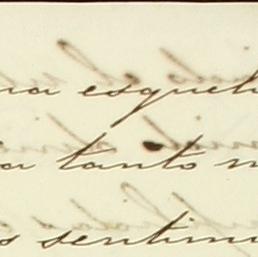 na esque
a tanto n
s sentim